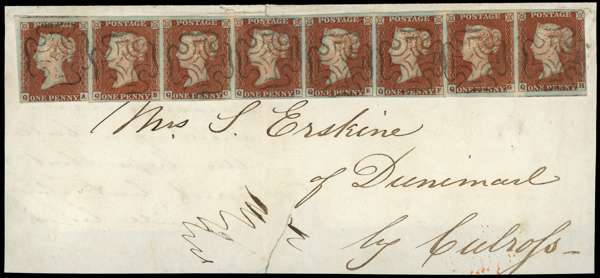 POSTAGE POSTAGE POSTAGE POSTAGE POSTAGE POSTAGE POSTAGE POSTAGE
ONE PENNY ONE PENNY ONE PENNY ONE PENNY ONE PENNY ONE PENNY ONE PENNY ONE PENNY
Mrs S. Erskine
of Dunimarl
by Culross